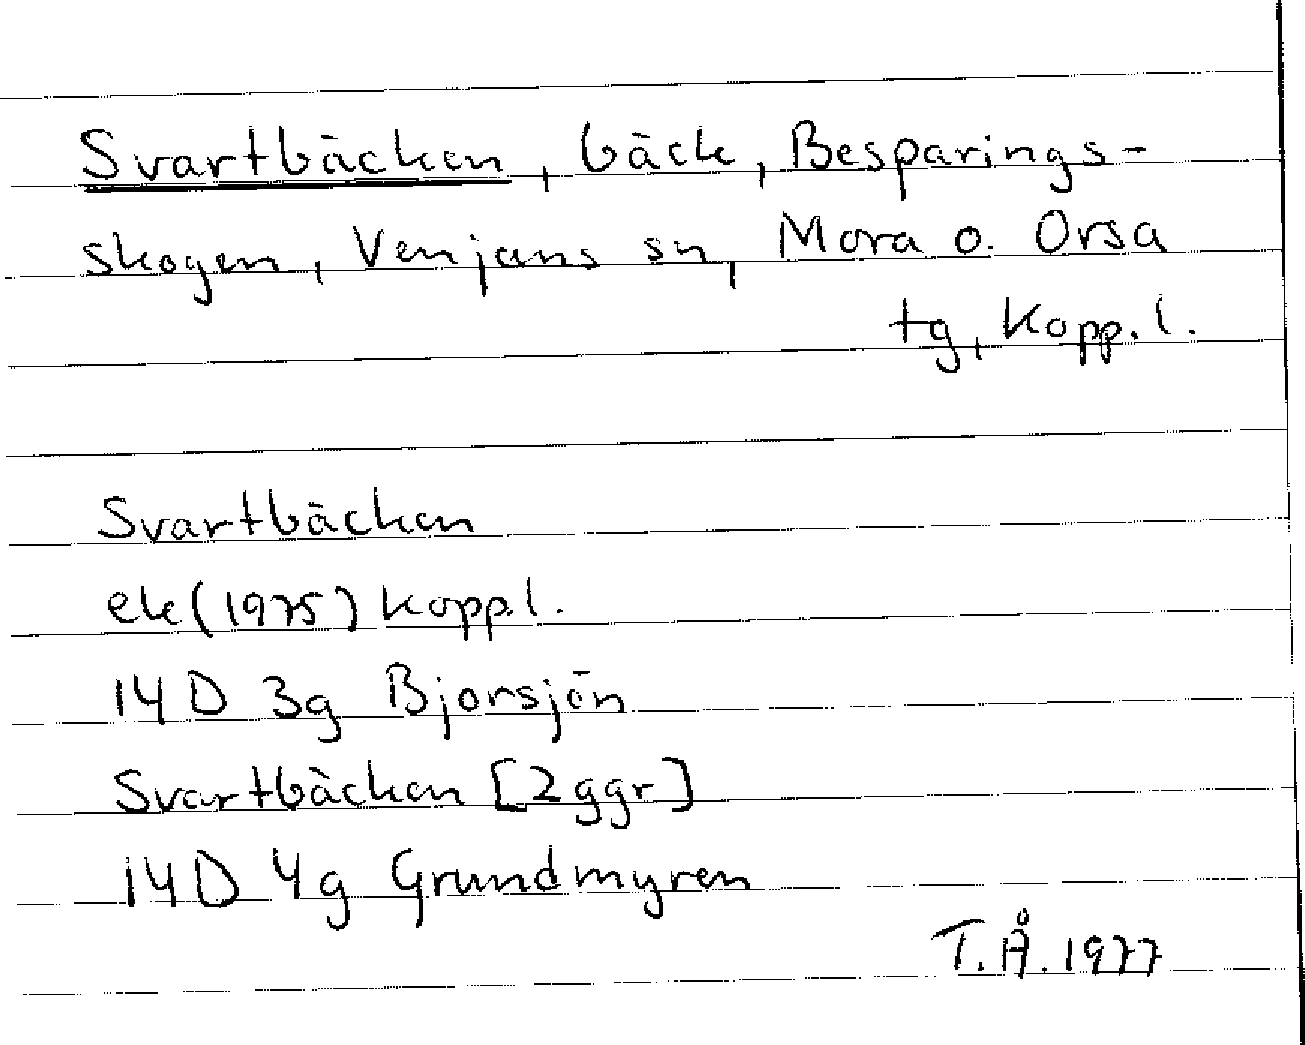 Svartbäcken, bäck, Besparings-
skogen, Venjans sn, Mora o. Orsa
tg, Kopp. l.
Svartbäcken
ek (1975) Kopp. l.
14 D 3g Bjorsjön
Svartbäcken [2 ggr]
14 D 4g Grundmyren
T. Å. 1977